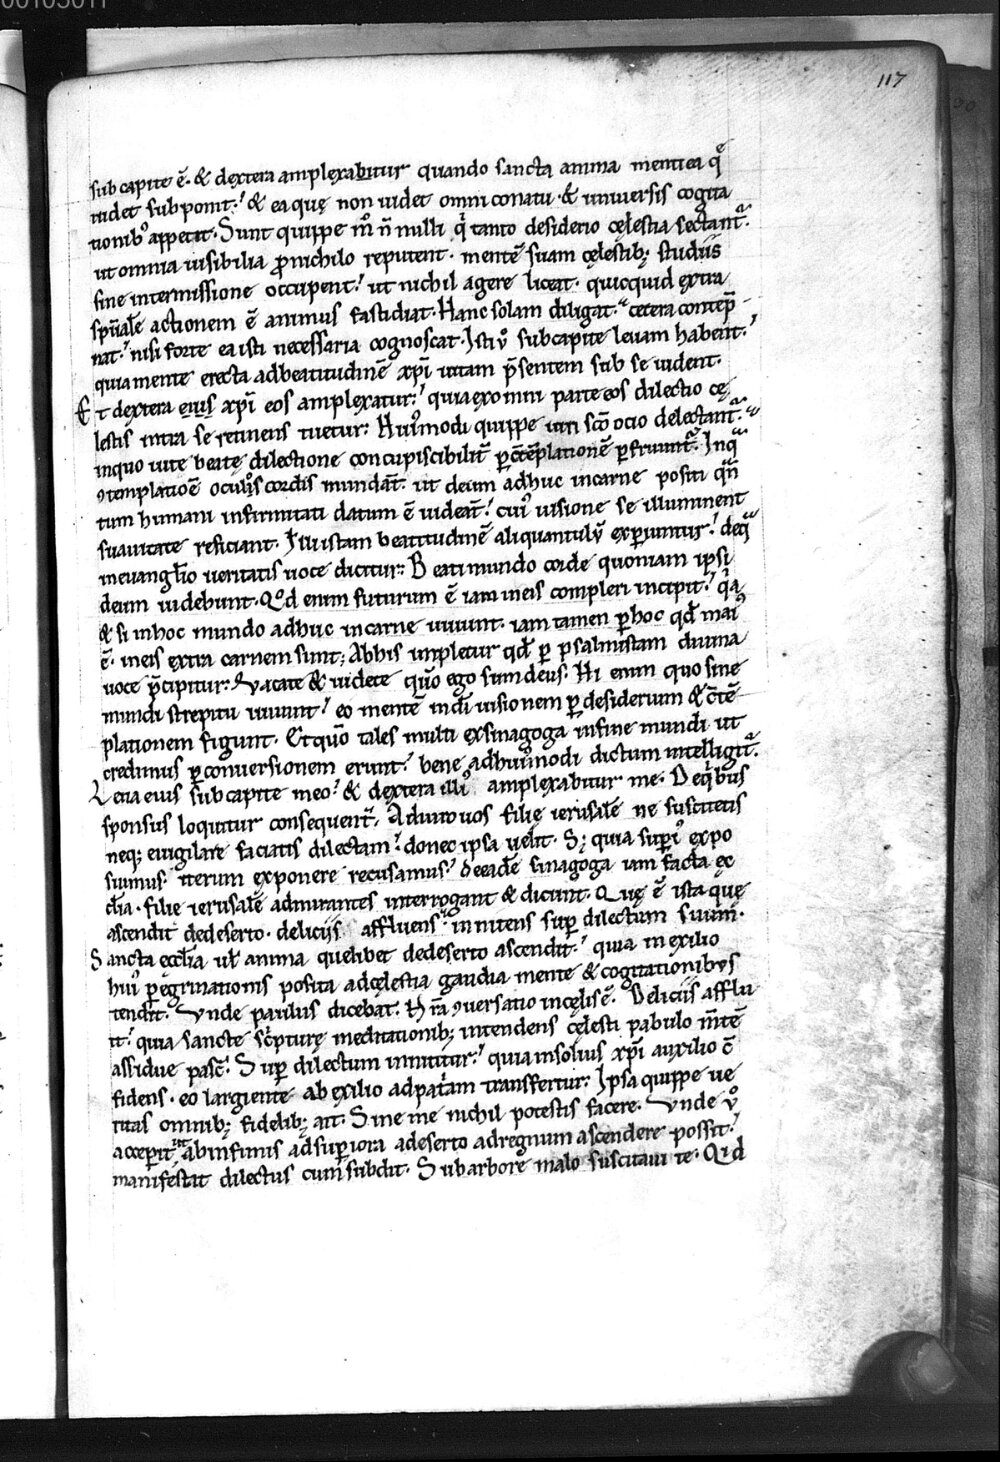 117
sub capite ē. & dextera amplexabitur quando sancta anima mente ea quę
uidet subponit: & ea quę non uidet omni conatu & uniuersis cogita
tionib; appetit. Sunt quippe m̊ n̄ nulli qͥ tanto desiderio cęlestia sectant᷑.
ut omnia uisibilia ꝓ nichilo reputent. mentē suam cęlestib; studiis
sine intermissione occupent: ut nichil agere liceat. quicquid extra
spūalē actionem ē animus fastidiat. Hanc solam diligat. cetera contēp
nat. nisi forte ea isti necessaria cognoscat. Isti ꝟ sub capite leuam habent.
quia mente erecta ad beatitudinē xp̄i uitam p̄sentem sub se uident.
Et dextera eius xp̄i eos amplexatur: quia ex omni parte eos dilectio cę
lestis intra se retinens tuetur: Huiꝰmodi quippe uiri sc̄o ocio delectant᷑.
in quo uitę beatę dilectione concupiscibilit᷑ ꝑ cōtēplationē ꝑfruunt᷑. In qͣ
ꝯtemplatioē oculos cordis mundāt. ut deum adhuc in carne positi qͣn
tum humani infirmitati datum ē uideāt: cuiꝰ uisione se illuminent
suauitate reficiant. Hi istam beatitudinē aliquantulū exꝑiuntur: de qͣ
in euangl̄io ueritatis uoce dicitur: Beati mundo corde quoniam ipsi
deum uidebunt. Qd̄ enim futurum ē iam in eis compleri incipit: qͥa
& si in hoc mundo adhuc in carne uiuunt. iam tamen ꝑ hoc qd̄ maiꝰ
ē. in eis extra carnem sunt; Ab his impletur qd̄ ꝑ psalmistam diuina
uoce p̄cipitur: Vacate & uidete quō ego sum deus. Hi enim quo sine
mundi strepitu uiuunt: eo mentē in di uisionem ꝑ desiderium & cōtē
plationem figunt. Et quō tales multi ex sinagoga in fine mundi ut
credimus ꝑ conuersionem erunt: bene ad huiꝰmodi dictum intelligit᷑.
Leua eius sub capite meo: & dextera illiꝰ amplexabitur me. De qͥbus
sponsus loquitur consequent᷑. Adiuro uos filię ierusalē ne suscitetis
neq; euigilare faciatis dilectam: donec ipsa uelit. S; quia suꝑiꝰ expo
suimus. iterum exponere recusamus: de eadē sinagoga iam facta ęc
cl̄ia. filię ierusalē admirantes interrogant & dicunt. Quę ē ista quę
ascendit de deserto. deliciis affluens. innitens suꝑ dilectum suum.
Sancta eccl̄ia ul̄ anima quelibet de deserto ascendit: quia in exilio
huiꝰ ꝑegrinationis posita ad cęlestia gaudia mente & cogitationibus
tendit. Vnde paulus dicebat. Nr̄a ꝯuersatio in cęlis ē. Deliciis afflu
it: quia sanctę sc̄pturę meditationib; intendens cęlesti pabulo m̄tē
assidue pasc᷑. Suꝑ dilectum innititur: quia in solius xp̄i auxilio c̄
fidens. eo largiente ab exilio ad pat͛am transfertur: Ipsa quippe ue
ritas omnib; fidelib; ait. Sine me nichil potestis facere. Vnde ꝟ
acceperit, ut ab infimis ad suꝑiora a deserto ad regnum ascendere possit:
manifestat dilectus cum subdit. Sub arbore malo suscitaui te. Qid